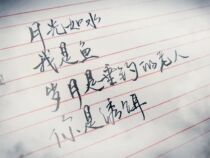 月光如水
我是鱼
岁月是垂钓的老人
你是诱饵